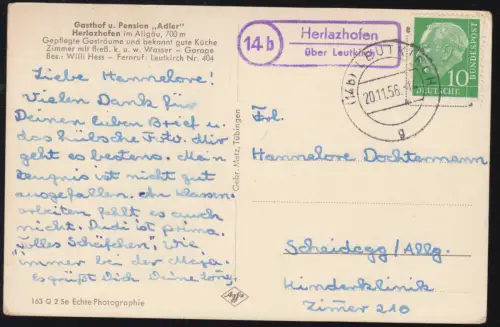 Gasthof u. Pension „Adler"
Herlazhofen im Allgäu, 700 m
Gepflegte Gasträume und bekannt gute Küche
Zimmer mit fließ. k. u. w. Wasser - Garage
Bes.: Willi Hess - Fernruf: Leutkirch Nr. 404
Liebe Hannelore!
Vielen Dank für
Deinen lieben Brief u.
das hübsche Foto. Mir
geht es bestens. Mein
Zeugnis ist nicht gut
ausgefallen. An Klassen-
arbeiten fehlt es auch
nicht. Dudi ist prima.
Tolles Schäfchen". Wie
"immer bei der Maja.
Es grüßt Dich Deine
163 G 2 5e Echte Photographie
Gebr. Metz, Tübingen
Agfa
14b
Herlazhofen
über Leutkirch
(14b) LEUTKIRCH
20.11.56
g
10
DEUTSCHE
BUNDESPOST
Frl.
Hannelore Dochtermann
Scheidegg/Allg.
Kinderklinik
Zimer 210